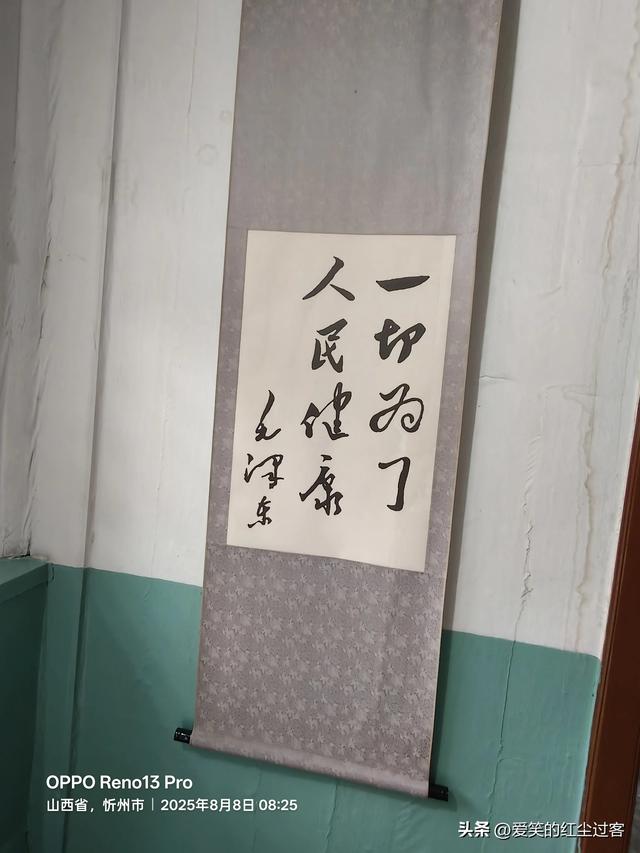 一切为了
人民健康
毛泽东
OPPO Reno13 Pro
山西省，忻州市｜2025年8月8日 08:25
头条 @爱笑的红尘过客